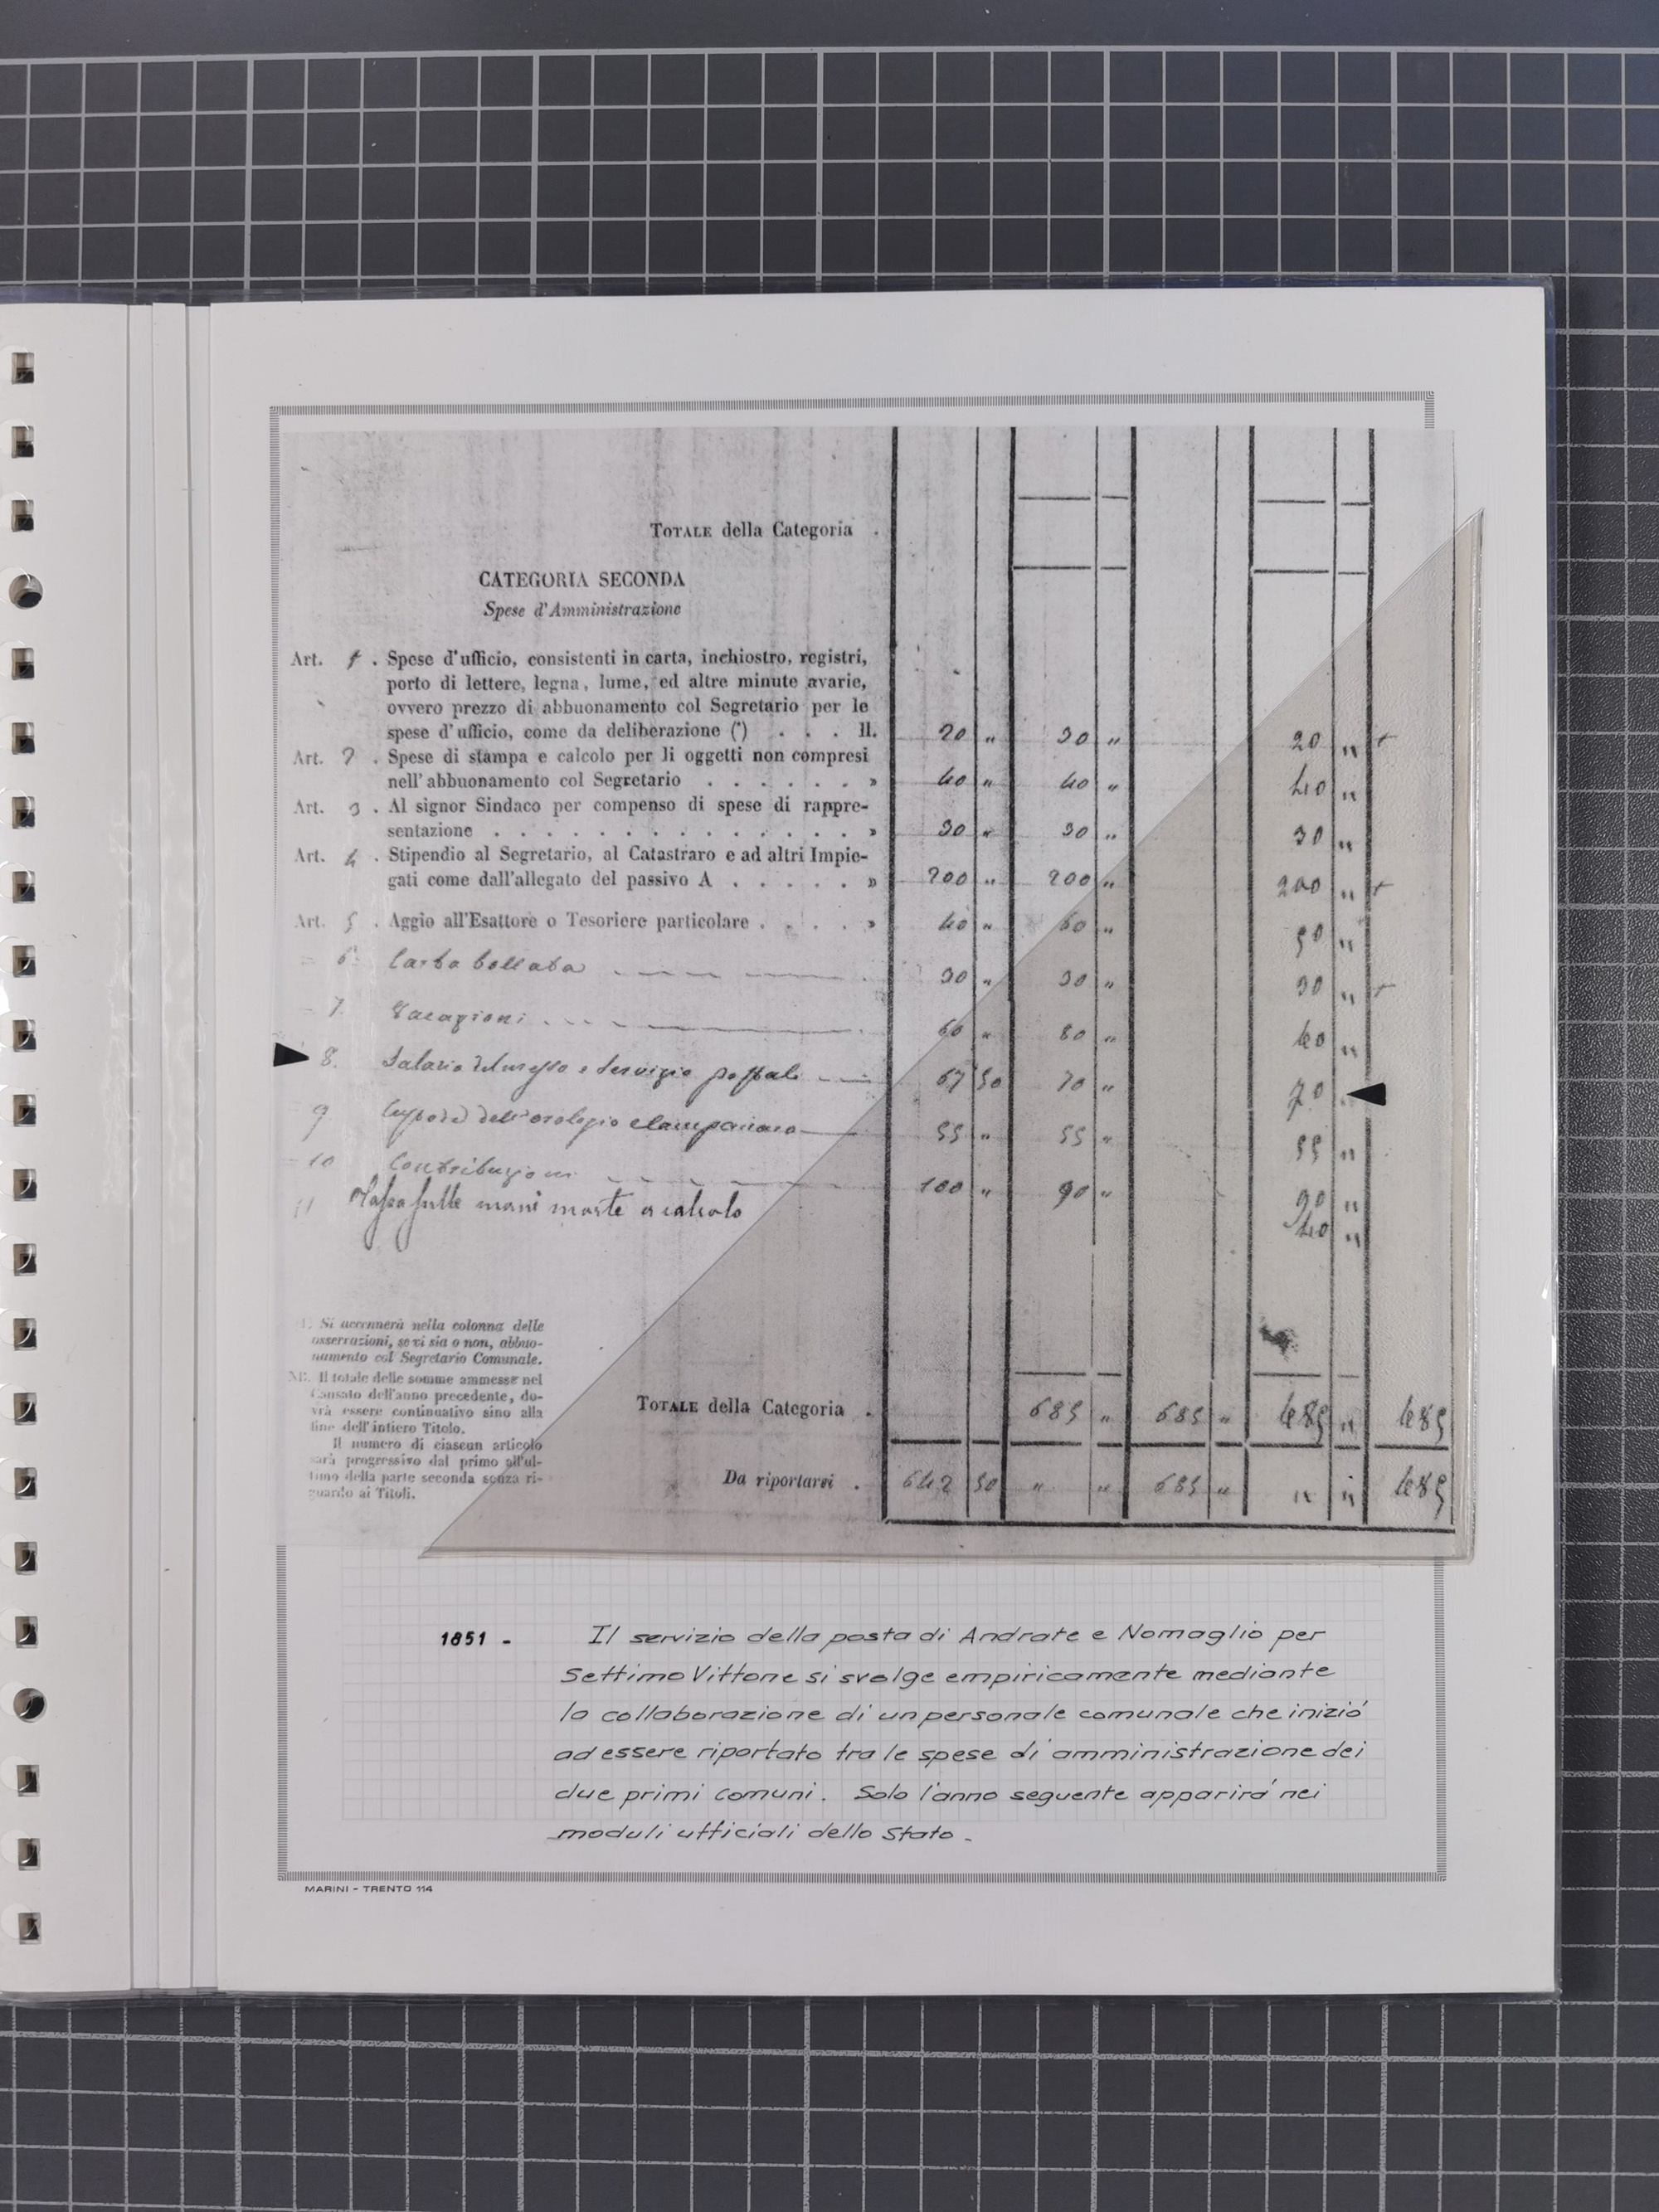 TOTALE della Categoria .
CATEGORIA SECONDA
Spese d'Amministrazione
Art. 1 . Spese d'ufficio, consistenti in carta, inchiostro, registri,
porto di lettere, legna, lume, ed altre minute avarie,
ovvero prezzo di abbuonamento col Segretario per le
spese d'ufficio, come da deliberazione (*) . . . ll. 20 " 30 " 20 "
Art. 2 . Spese di stampa e calcolo per li oggetti non compresi
nell'abbuonamento col Segretario . . . . . . . » 40 " 40 " 40 "
Art. 3 . Al signor Sindaco per compenso di spese di rappre-
sentazione . . . . . . . . . . . . . . . » 30 " 30 " 30 "
Art. 4 . Stipendio al Segretario, al Catastraro e ad altri Impie-
gati come dall'allegato del passivo A . . . . . » 200 " 200 " 200 "
Art. 5 . Aggio all'Esattore o Tesoriere particolare . . . . » 40 " 60 " 50 "
6 Carta bollata 30 " 30 " 30 "
7 Vacazioni 60 " 80 " 60 "
8. Salario del messo e servizio postale 67 50 70 " 70
9 dell'orologio e campanaro 55 " 55 " 55 "
10 Contribuzioni 100 " 90 " 90 "
11 Tassa sulle mani morte a calcolo 40 "
Si accennerà nella colonna delle
osservazioni, se vi sia o non, abbuo-
namento col Segretario Comunale.
NB. Il totale delle somme ammesse nel
Causato dell'anno precedente, do-
vrà essere continuativo sino alla
fine dell'intiero Titolo.
Il numero di ciascun articolo
sarà progressivo dal primo all'ul-
timo della parte seconda senza ri-
guardo ai Titoli.
TOTALE della Categoria . 685 " 685 " 685 " 685
Da riportarsi . 642 50 " " 685 " " " 685
1851 - Il servizio della posta di Andrate e Nomaglio per
Settimo Vittone si svolge empiricamente mediante
la collaborazione di un personale comunale che iniziò
ad essere riportato tra le spese di amministrazione dei
due primi comuni. Solo l'anno seguente apparirà nei
moduli ufficiali dello Stato.
MARINI - TRENTO 114